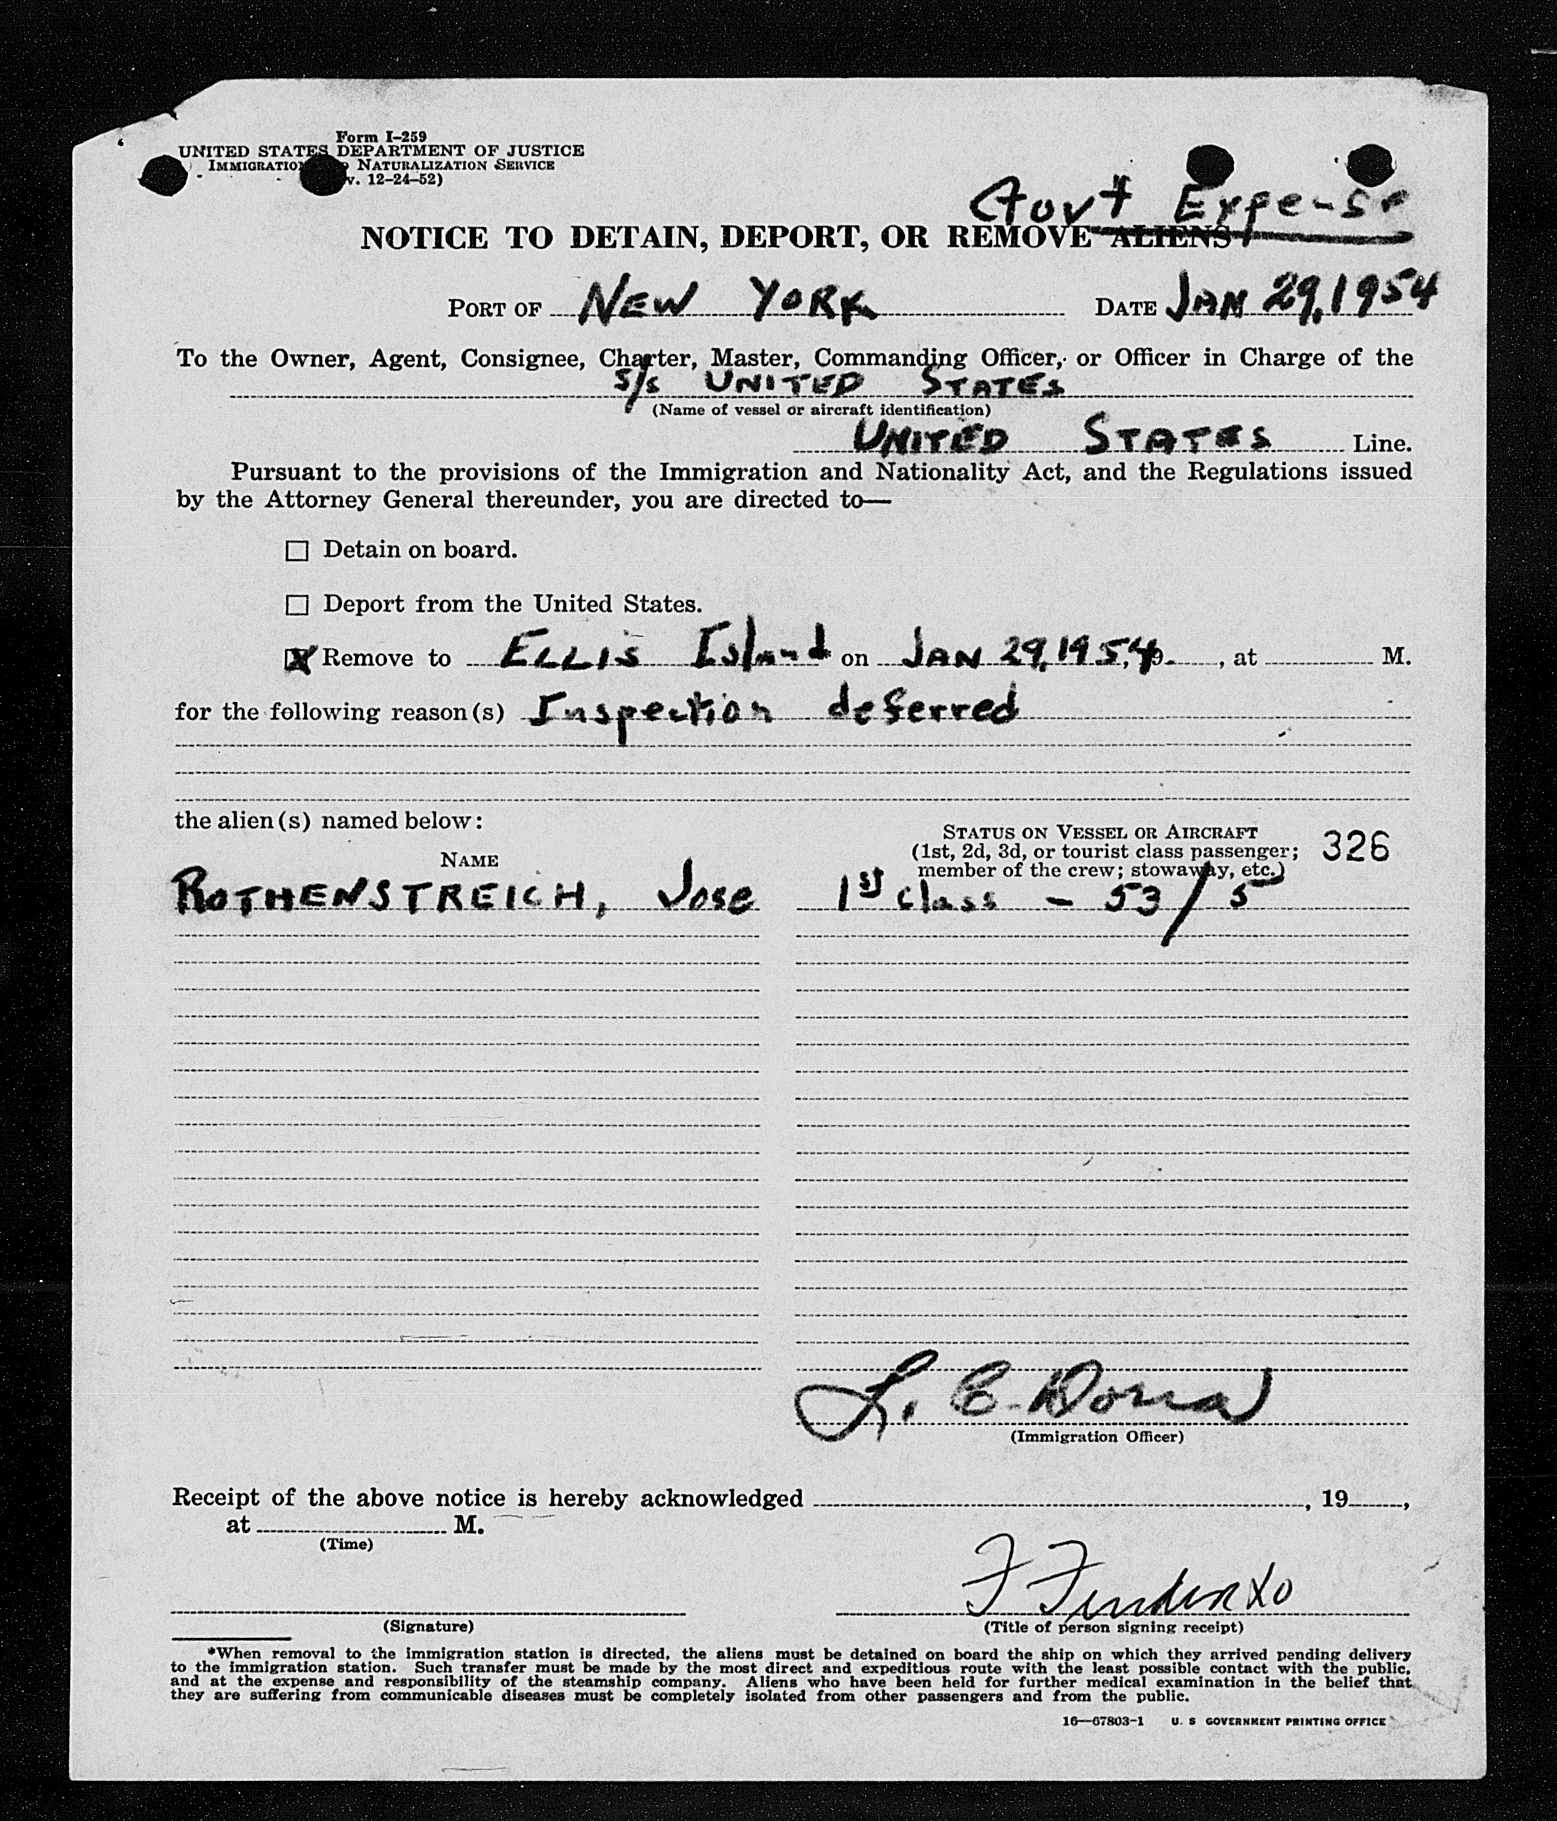 Form I-259
UNITED STATES DEPARTMENT OF JUSTICE
IMMIGRATION NATURALIZATION SERVICE
v. 12-24-52)
Govt Expense
NOTICE TO DETAIN, DEPORT, OR REMOVE ALIENS
PORT OF NEW YORK DATE JAN 29, 1954
To the Owner, Agent, Consignee, Charter, Master, Commanding Officer, or Officer in Charge of the
S/S UNITED STATES
(Name of vessel or aircraft identification)
UNITED STATES Line.
Pursuant to the provisions of the Immigration and Nationality Act, and the Regulations issued
by the Attorney General thereunder, you are directed to—
☐ Detain on board.
☐ Deport from the United States.
☒ Remove to ELLIS Island on JAN 29, 1954, at M.
for the following reason(s) Inspection deferred
the alien(s) named below:
STATUS ON VESSEL OR AIRCRAFT
(1st, 2d, 3d, or tourist class passenger;
member of the crew; stowaway, etc.)
326
NAME
ROTHENSTREICH, Jose 1st class - 53/5
L. C. Dorna
(Immigration Officer)
Receipt of the above notice is hereby acknowledged , 19 ,
at M.
(Time)
F
(Signature) (Title of person signing receipt)
*When removal to the immigration station is directed, the aliens must be detained on board the ship on which they arrived pending delivery
to the immigration station. Such transfer must be made by the most direct and expeditious route with the least possible contact with the public,
and at the expense and responsibility of the steamship company. Aliens who have been held for further medical examination in the belief that
they are suffering from communicable diseases must be completely isolated from other passengers and from the public.
16—67803-1 U. S GOVERNMENT PRINTING OFFICE